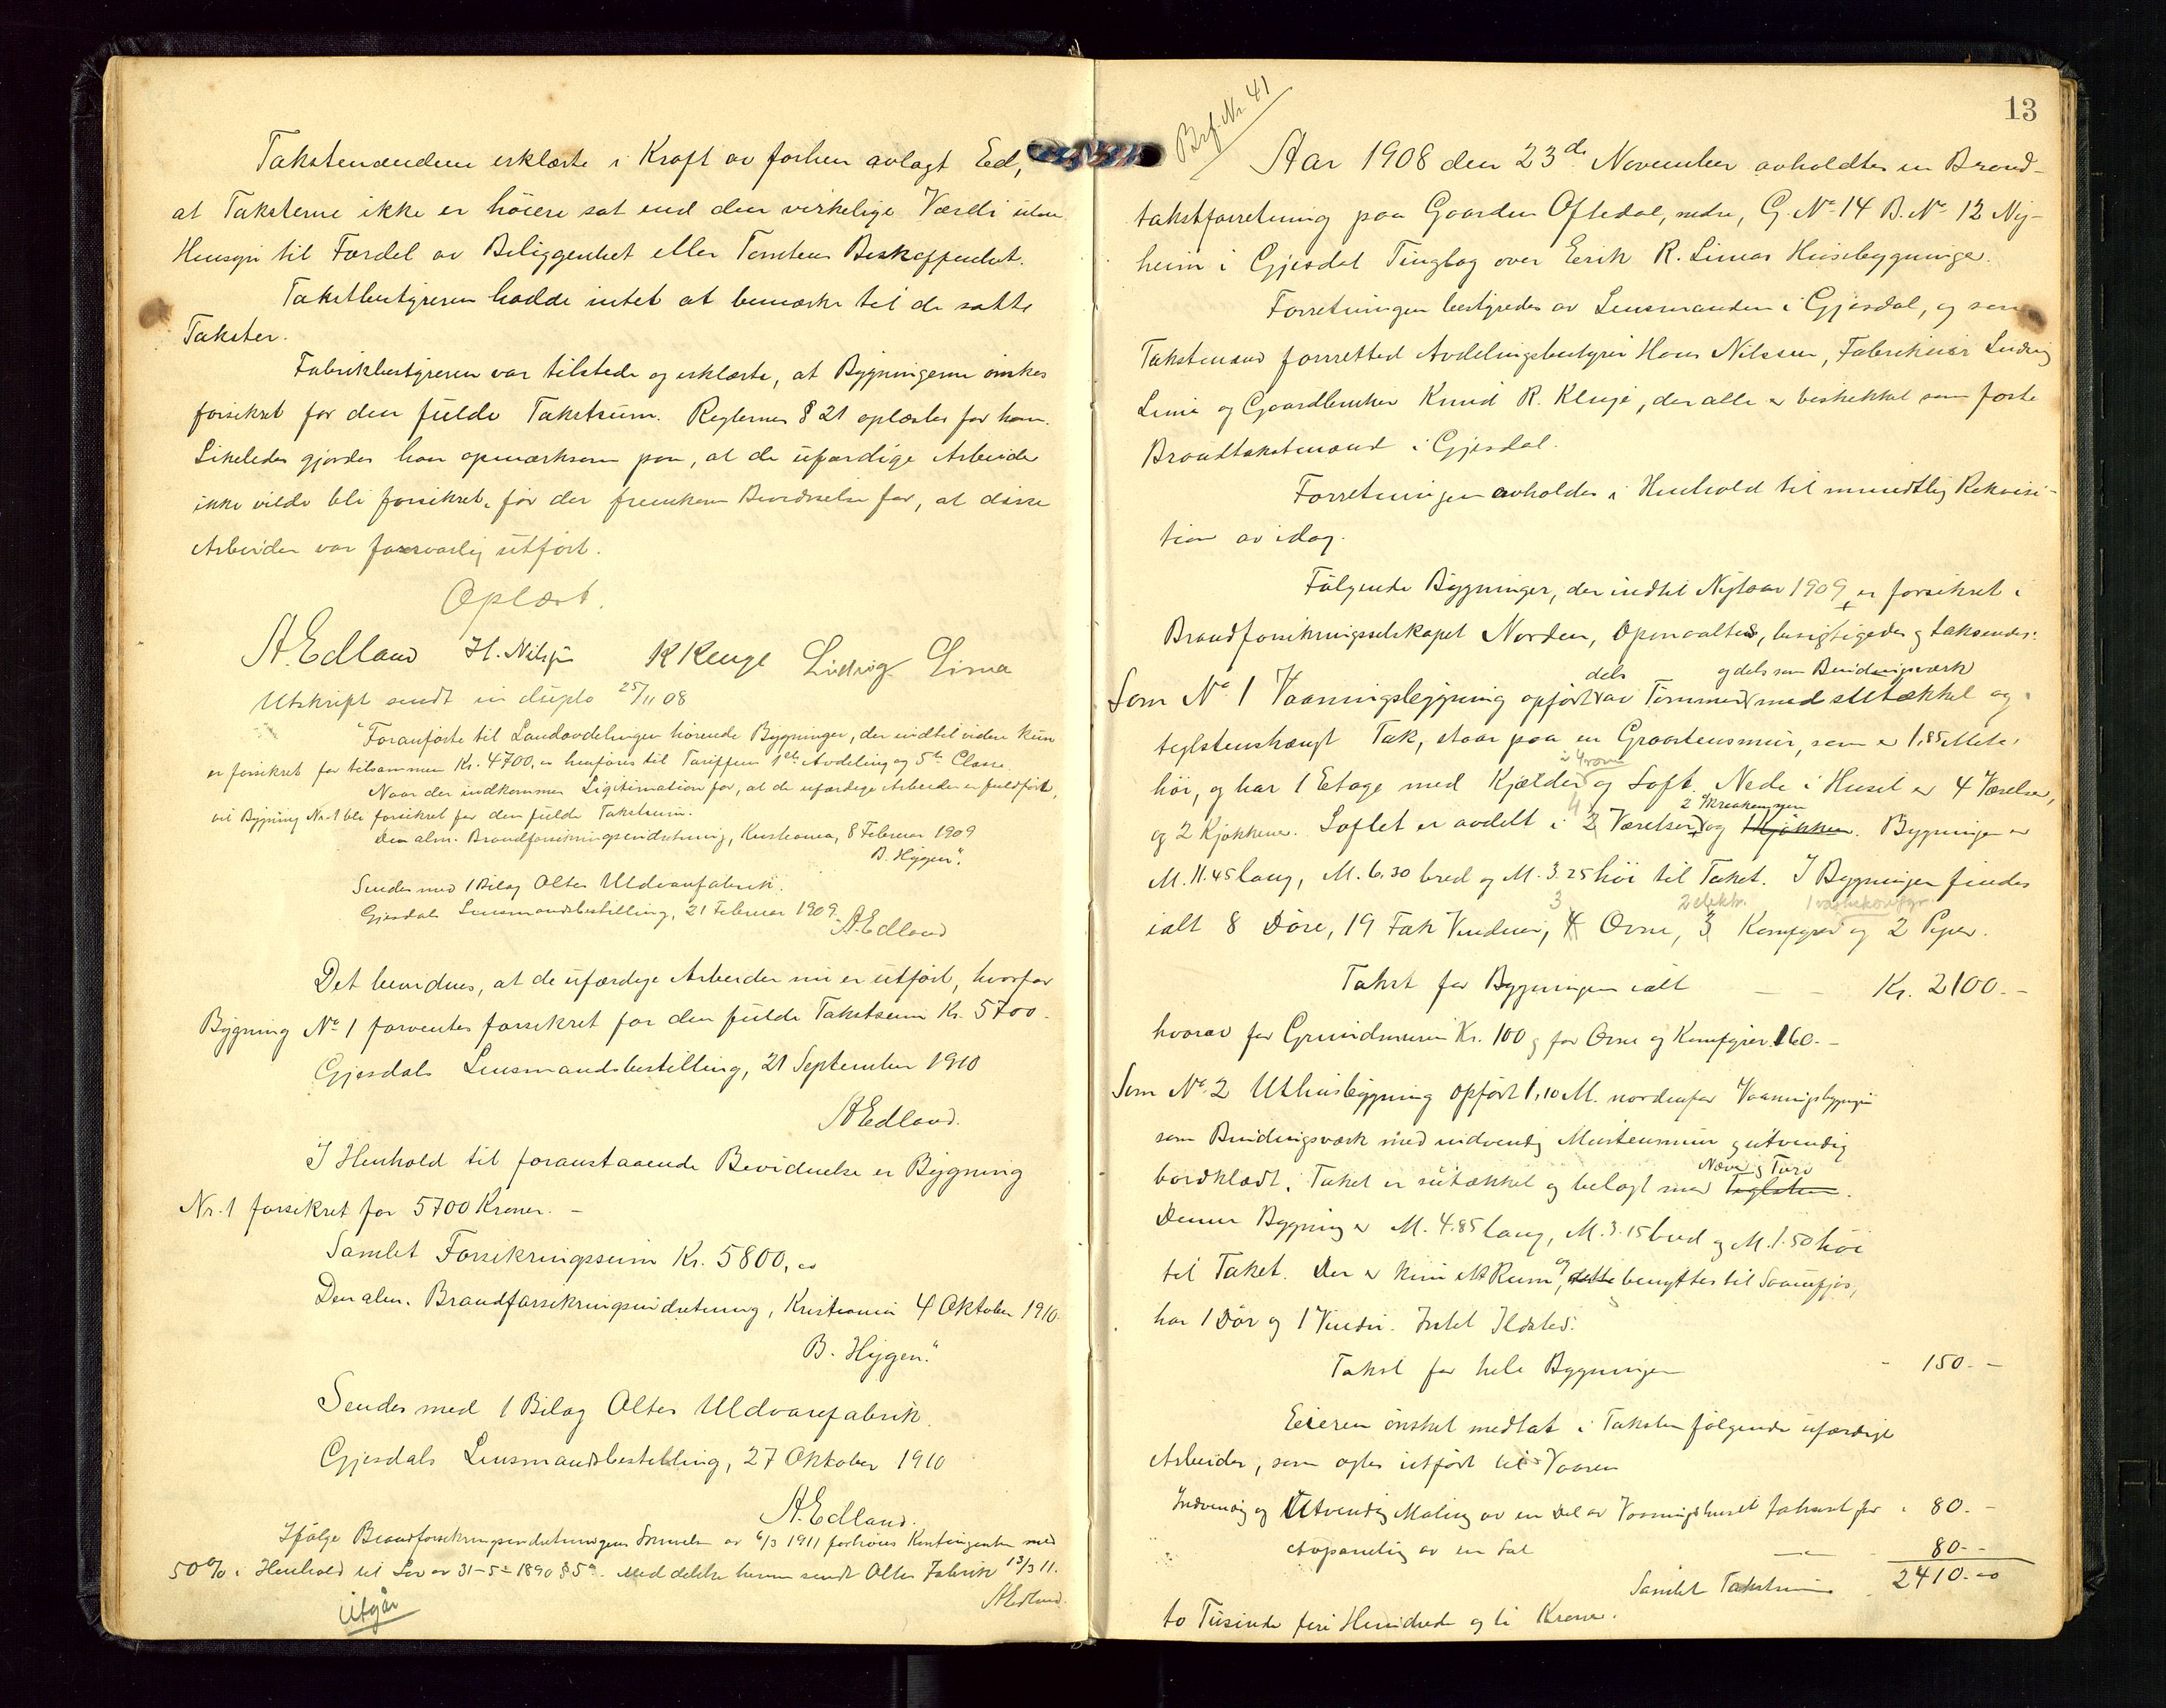 Takstmændene erklærte i Kraft av forhen avlagt Ed,
at Taksterne ikke er höiere sat end den virkelige Værdi uten
Hensyn til Fordel av Beliggenhet eller Tomtens Beskaffenhet.
Takstbestyreren hadde intet at bemærke til de satte
Takster.
Fabrikbestyreren var tilstede og erklærte, at Bygningerne önskes
forsikret for den fulde Takstsum. Reglernes § 21 oplæstes for ham.
Likeledes gjordes han opmerksom paa, at de ufærdige Arbeider
ikke vilde bli forsikret, för der fremkom Bevidnelse for, at disse
Arbeider var forsvarlig utfört.
Oplæst.
A. Edland H. Nilssen K Kluge Ludvig Lima
Utskrift sendt in duplo 25/11 08
"Foranförte til Landavdelingen hörende Bygninger, der indtil videre kun
er forsikret for tilsammen Kr. 4700, er henföres til Tariffens 1ste Avdeling og 5te Classe.
Naar der indkommer Legitimation for, at de ufærdige Arbeider er fuldfört,
vil Bygning Nr. 1 bli forsikret for den fulde Takstsum.
Den alm. Brandforsikringsindretning, Kristiania, 8 Februar 1909
B. Hygen".
Sendes med 1 Bilag Oltes Uldvarefabrik.
Gjesdals Lensmandsbestilling, 21 Februar 1909.
A. Edland
Det bevidnes, at de ufærdige Arbeider nu er utfört, hvorfor
Bygning No 1 forventes forsikret for den fulde Takstsum Kr. 5700.
Gjesdals Lensmandsbestilling, 21 September 1910
A Edland.
I Henhold til foranstaaende Bevidnelse er Bygning
Nr. 1 forsikret for 5700 Kroner. –
Samlet Forsikringssum Kr. 5800,00
Den alm. Brandforsikringsindretning, Kristiania 4 Oktober 1910.
B. Hygen."
Sendes med 1 Bilag Oltes Uldvarefabrik.
Gjesdals Lensmandsbestilling, 27 Oktober 1910
A. Edland.
Ifölge Brandforsikringsindretningens Skrivelse av 6/3 1911 forhöies Kontingenten med
50% i Henhold til Lov av 31-5-1890 § 5a. Meddelelse herom sendt Oltes Fabrik 13/3 11.
A Edland.
Utgår
13
Brf. Nr. 41
Aar 1908 den 23de November avholdtes en Brand-
takstforretning paa Gaarden Oftedal, nedre, G. No 14 B. No 12 Ny-
heim i Gjesdal Tinglag over Eerik R. Limas Husebygninger.
Forretningen bestyredes av Lensmanden i Gjesdal, og som
Takstmænd forrettet Avdelingsbestyrer Hans Nilssen, Fabrikeier Ludvig
Lima og Gaardbruker Knud R. Kluge, der alle er beskikket som faste
Brandtakstmænd i Gjesdal.
Forretningen avholdes i Henhold til mundtlig Rekvisi-
tion av idag.
Fölgende Bygninger, der indtil Nytaar 1909 er forsikret i
Brandforsikringsselskapet Norden, opmaaltes, besigtigedes og takseredes:
dels og dels som Bindingsværk
Som No 1 Vaaningsbygning opfört av Tömmer med sutækket og
teglstenshængt Tak, staar paa en Graastensmur, som er 1,85 Meter
i 4 rom
höi, og har 1 Etage med Kjælder og Loft. Nede i Huset er 4 Værelser,
4 2 Skraakammer
og 2 Kjökkener. Loftet er avdelt i 2 Værelser og 1 Kjökken. Bygningen er
M. 11.45 lang, M. 6.30 bred og M. 3.25 höi til Taket. I Bygningen findes
3 2 elektr. 1 vaskekomfyr
ialt 8 Döre, 19 Fak Vinduer, 4 Ovne, 3 Komfyrer og 2 Piper.
Takst for Bygningen ialt — — Kr. 2100. –
hvorav for Grundmuren Kr. 100 og for Ovne og Komfyrer 160. –
Som No 2 Uthusbygning opfört 1,10 M. nordenfor Vaaningsbygningen
som Bindingsværk med indvendig Murstensmur og utvendig
Næver og Torv
bordklædt. Taket er sutækket og belagt med Teglsten.
Denne Bygning er M. 4.85 lang, M. 3.15 bred og M. 1.50 höi
til Taket. Der er kun et Rum, og dette benyttes til Sauefjös,
har 1 Dör og 1 Vindu. Intet Ildsted.
Takst for hele Bygningen - 150. –
Eieren önsket medtat i Taksten fölgende ufærdige
Arbeider, som agtes utfört til Vaaren
Indvendig og Utvendig Maling av en Del av Vaaningshuset takseret for - 80. –
Avpaneling av en Sal — 80. –
Samlet Takstsum 2410.00
to Tusinde fire Hundrede og ti Kroner.